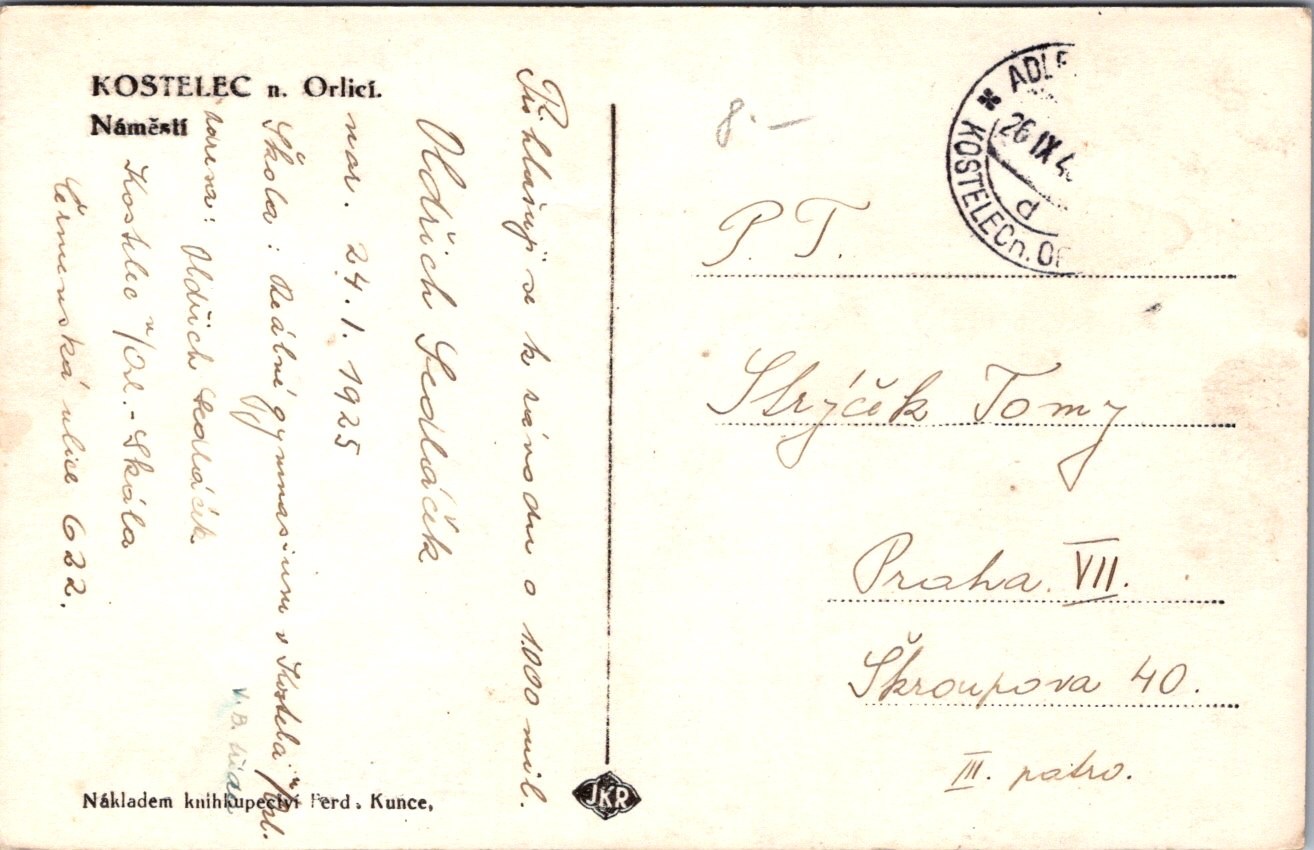 KOSTELEC n. Orlicí.
Náměstí
Přihlašuji se k závodu o 1000 mil.
Oldřich Sedláček
nar. 24.1.1925
Škola: Reálné gymnasium v Kostelci n/Orl.
V.B. třída
Oldřich Sedláček
Kostelec n/Orl. - Skála
ulice 622.
Nákladem knihkupectví Ferd. Kunce,
JKR
8.—
ADLE
26 IX 4
d
KOSTELEC n. OR
P. T.
Strýček Tomy
Praha VII.
Škroupova 40.
III. patro.